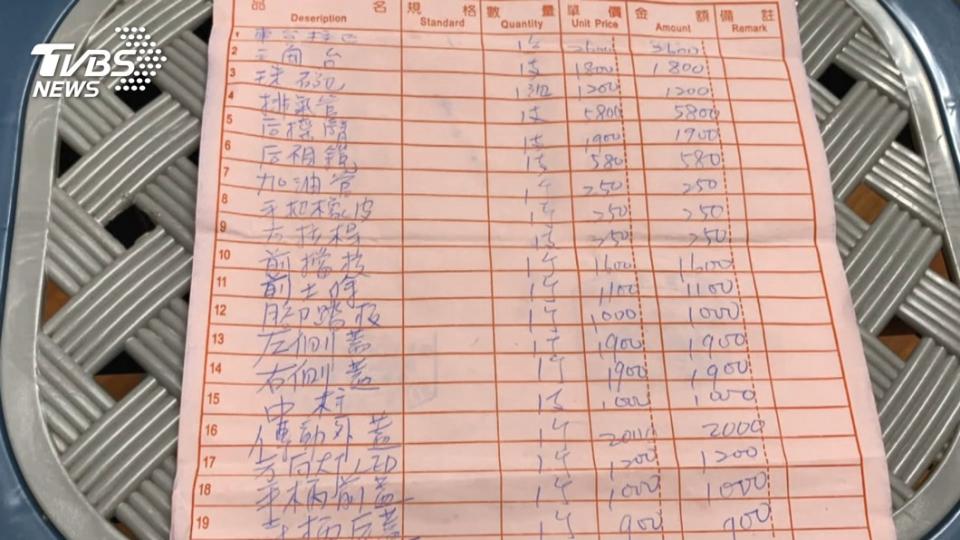 TVBS
NEWS
品 名 規 格 數 量 單 價 金 額 備 註
Description Standard Quantity Unit Price Amount Remark
1
2 三角台 1支 1800 1800
3 珠碗 1組 1200 1200
4 排氣管 1支 5800 5800
5 后搖臂 1支 1900 1900
6 后視鏡 1支 580 580
7 加油管 1个 250 250
8 手把橡皮 250 250
9 250 250
10 前擋 1个 1600 1600
11 前土除 1个 1100 1100
12 脚踏板 1个 1000 1000
13 左側蓋 1个 1900 1900
14 右側蓋 1个 1900 1900
15 中柱 1支 1000 1000
16 傳動外蓋 1个 2000 2000
17 方向灯LED 1个 1200 1200
18 手柄前蓋 1个 1000 1000
19 手柄后蓋 1个 900 900